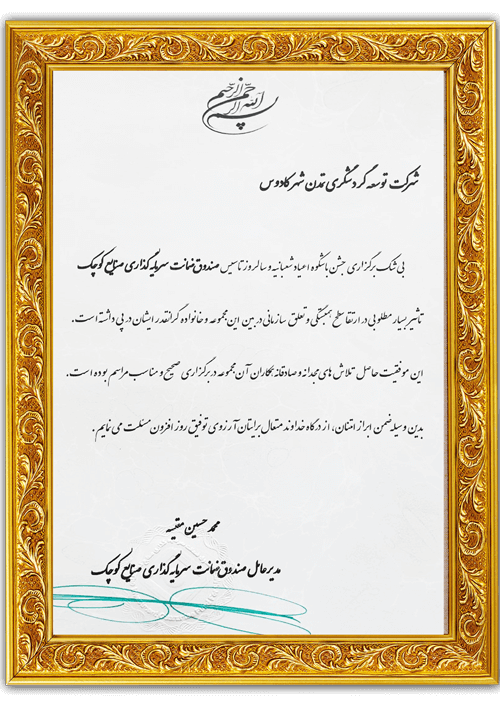 بسم الله الرحمن الرحیم
شرکت توسعه گردشگری تمدن شهر کادوس
بی شک برگزاری جشن باشکوه اعیاد شعبانیه و سالروز تاسیس صندوق ضمانت سرمایه گذاری صنایع کوچک
تاثیر بسیار مطلوبی در ارتقا سطح همبستگی و تعلق سازمانی در بین این مجموعه و خانواده گرانقدر ایشان در پی داشته است.
این موفقیت حاصل تلاش های مجدانه و صادقانه همکاران آن مجموعه در برگزاری صحیح و مناسب مراسم بوده است.
بدین وسیله ضمن ابراز امتنان، از درگاه خداوند متعال برایتان آرزوی توفیق روز افزون مسئلت می نمایم.
محمد حسین مقیسه
مدیرعامل صندوق ضمانت سرمایه گذاری صنایع کوچک